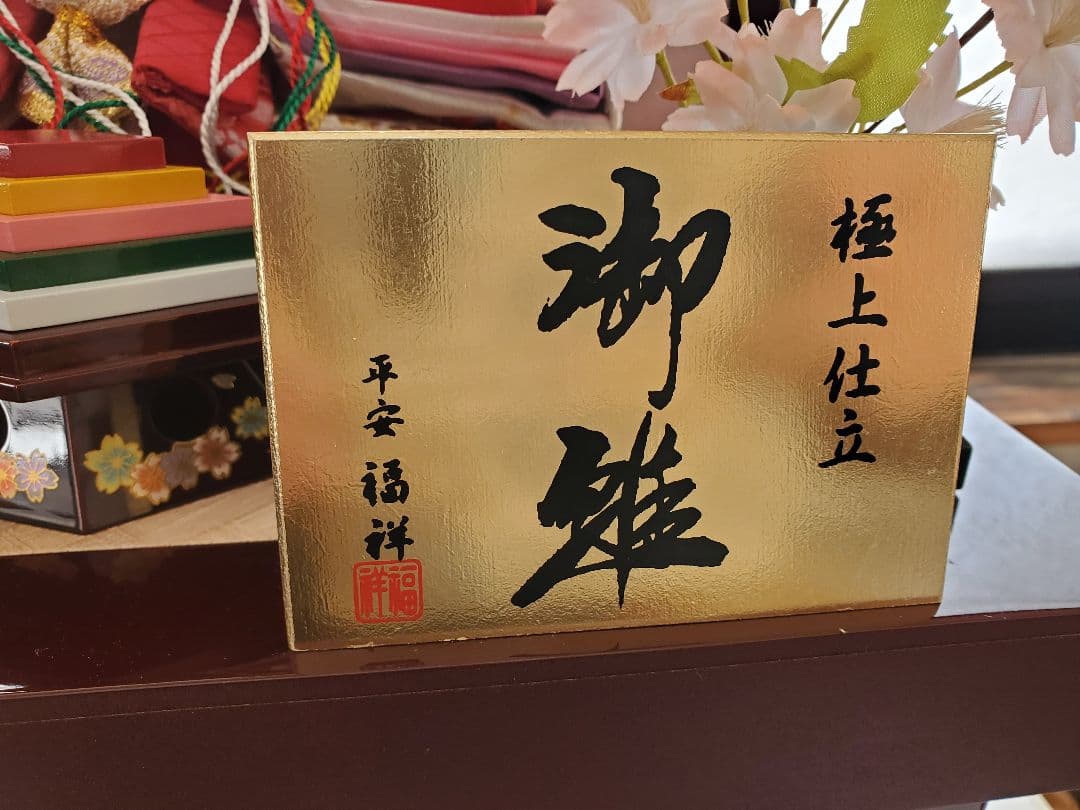 極上仕立
御雛
平安 福祥
福祥